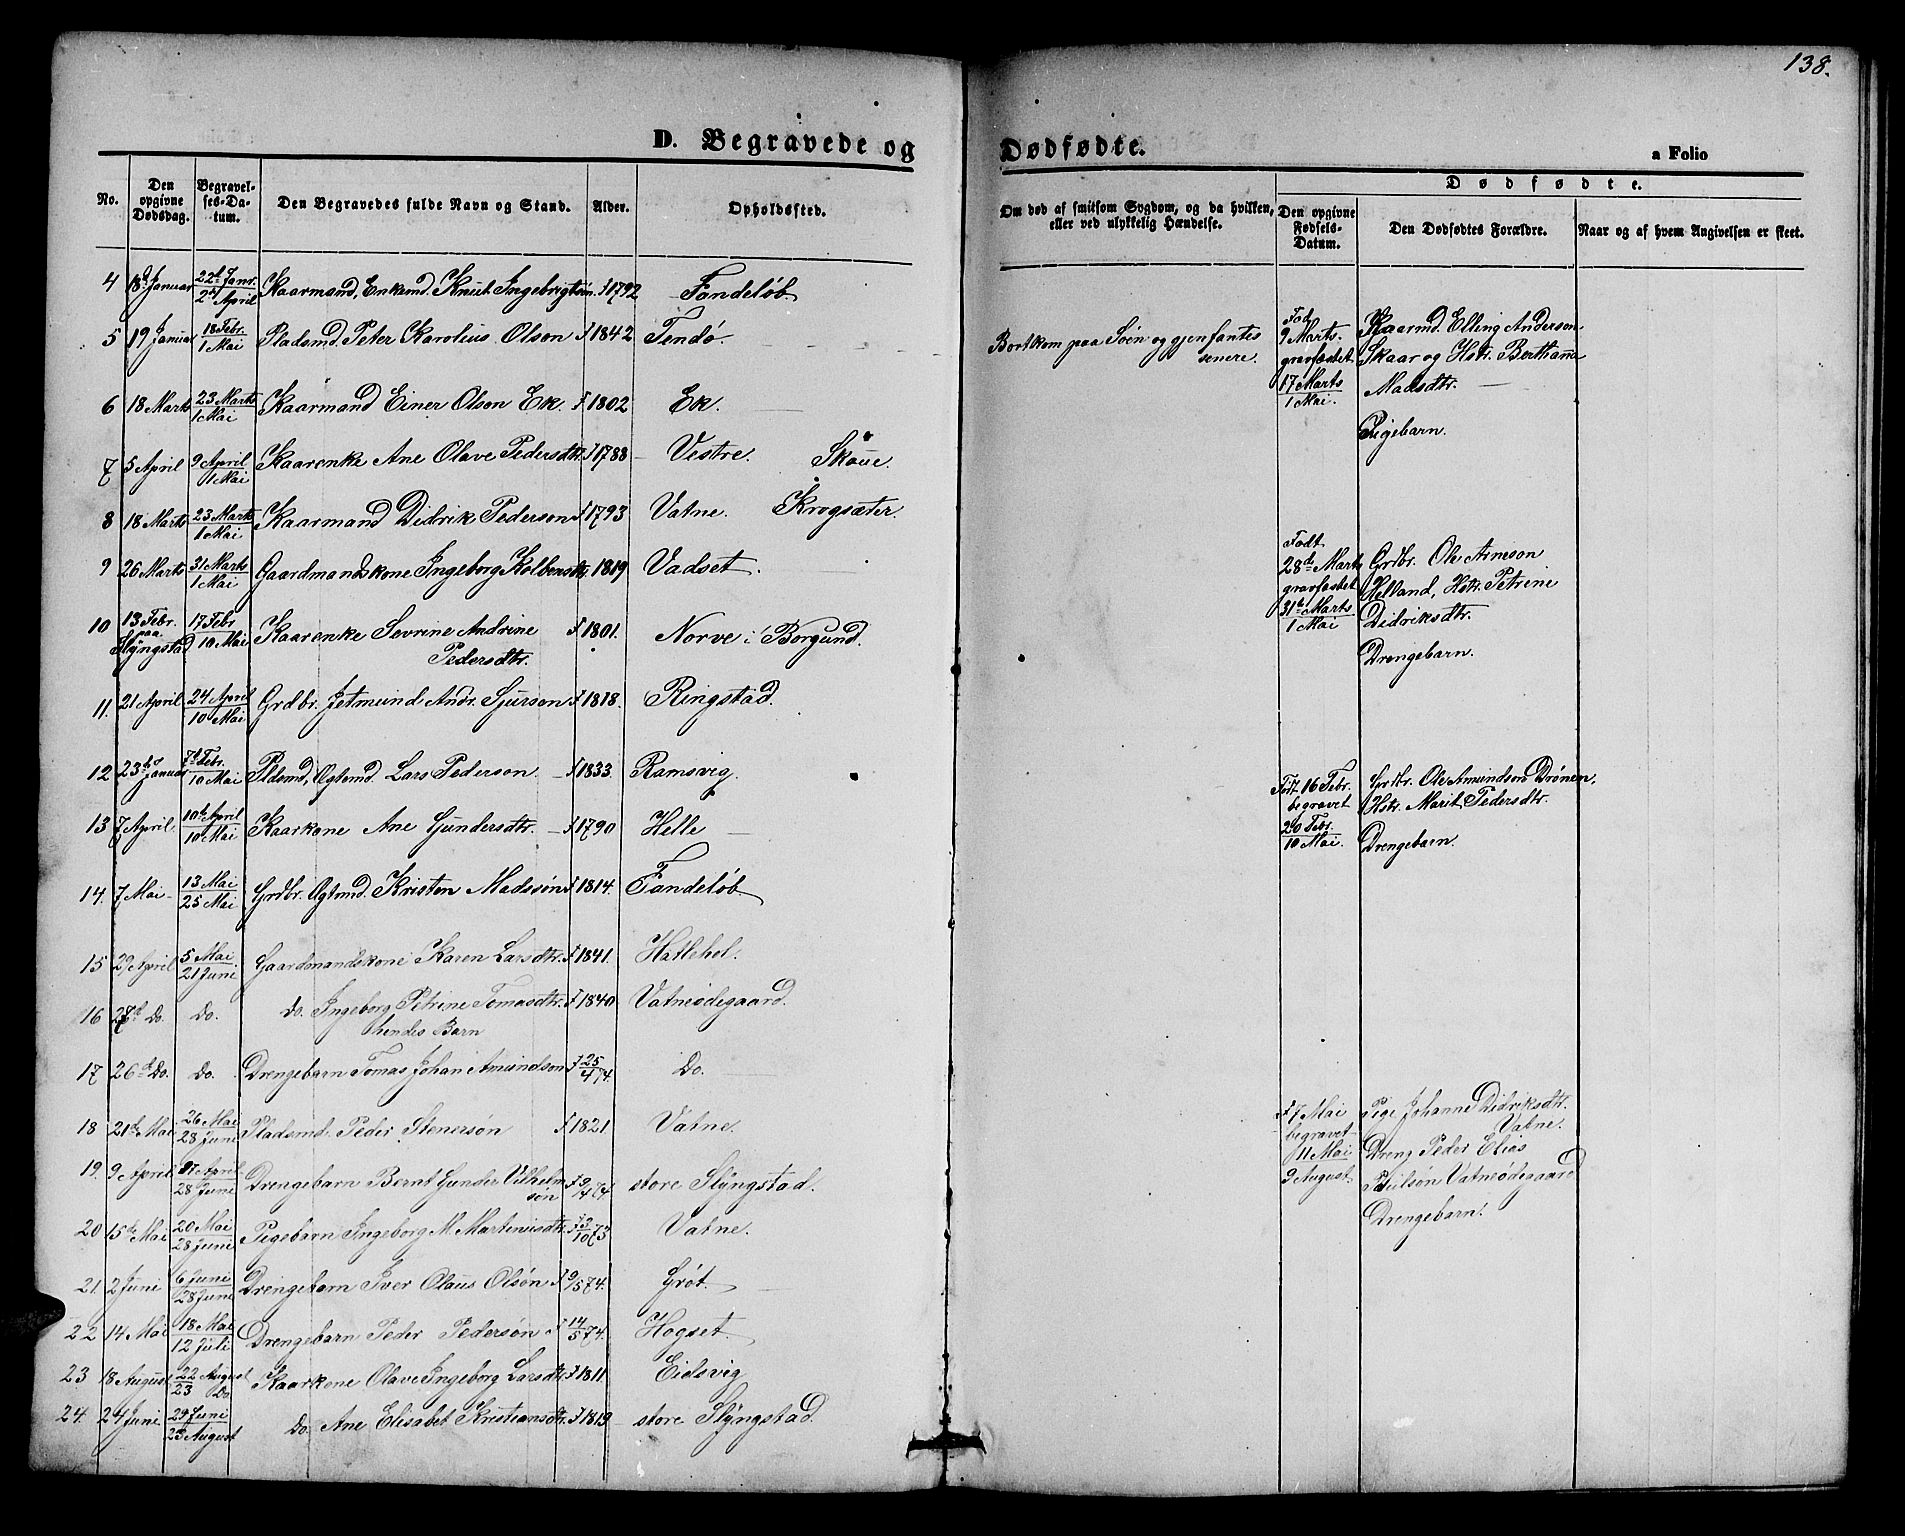 138.
D. Begravede og
Dødfødte.
a Folio
No.
Den opgivne Dødsdag.
Begravelses-Datum.
Den Begravedes fulde Navn og Stand.
Alder.
Opholdssted.
Om død af smitsom Sygdom, og da hvilken, eller ved ulykkelig Hændelse.
Dødfødte.
Den opgivne Fødsels-Datum.
Den Dødfødtes Forældre.
Naar og af hvem Angivelsen er skeet.
4 18d Januar 22d Janr. 2d April Kaarmand, Enkemd. Knut Ingebrigtsøn f 1792 Fandeløb
5 19 Januar 18 Febr. 1 Mai Pladsmd. Peter Karolius Olson f 1842 Tendø.
Bortkom paa Søen og gjenfantes
senere.
6 18 Marts 23 Marts 1 Mai Kaarmand Einer Olson Ek. f 1802 Ek.
7 5 April 9 April 1 Mai Kaarenke Ane Olave Pedersdtr. f 1788 Vestre. Skoue.
8 18 Marts 23 Marts 1 Mai Kaarmand Didrik Pederson f 1793 Vatne. Krogsæter.
9 26 Marts 31 Marts 1 Mai Gaardmandskone Ingeborg Kolbensdtr. 1819 Vadset.
10 13 Febr. paa Slyngstad 17 Febr 10 Mai Kaarenke Sevrine Andrine f 1801. Norve i Borgund.
Pedersdtr.
11. 21 April 24 April 10 Mai Grdbr. Jetmund Andr. Sjurson f 1818. Ringstad.
12 23de Januar 7d Febr. 10 Mai Pldsmd, Ogtemd. Lars Pederson. f 1833. Ramsvig.
13 7 April. 10de April 10 Mai Kaarkone Ane Gundersdtr. f 1790 Helle
14. 7 Mai 13 Mai 25 Mai Grdbr. Ogtemd. Kristen Madssøn f 1814. Fandeløb
15 29 April 5 Mai 21 Juni Gaardmandskone Karen Larsdtr. f 1841. Hatlehol.
16 27d Do. Do. do. Ingeborg Petrine Tomasdtr. f 1840 Vatneødegaard.
hendes Barn
17 26d Do. Do. Drengebarn Tomas Johan Amundson f 25/4 74. Do.
18 21d Mai 26 Mai 28 Juni Pladsmd. Peder Stenersøn f 1821 Vatne.
19. 9 April April 28 Juni Drengebarn Bernt Gunder Vilhelm f 9/4 74. store Slyngstad.
søn
20 15de Mai 20 Mai 28 Juni Pigebarn Ingeborg M. Martinusdtr. 10 73 Vatne.
21. 2 Juni 6 Juni 28 Juni Drengebarn Iver Olaus Olsøn f 9/5 74. Grøt
22 14 Mai 18 Mai 12 Juli Drengebarn Peder Pedersøn f 14/5 74. Hogset
23 18 August 22 August 23 Do Kaarkone Olave Ingeborg Larsdtr. f 1811. Eidsvig
24. 24 Juni 29 Juni 23 August do. Ane Elisabet Kristiansdtr. f 1819 store Slyngstad
Fød
9 Marts.
gravfæstet
17 Marts
1 Mai.
Kaarmd. Elling Anderson
Skaar og Hstr. Berthanne
Madsdtr.
Pigebarn.
Født
28de Marts
gravfæstet
31d Marts
1 Mai
Grdbr. Ole Arneson
Helland, Hstr. Petrine
Didriksdtr.
Drengebarn.
Født. 16 Febr.
begravet
20 Febr.
10 Mai.
Grdbr. Ole Amundson Drønen.
Hstr. Marit Pedersdtr.
Drengebarn.
f 7 Mai
begravet
11 Mai
9 August
Pige Johanne Didriksdtr.
Vatne.
Dreng Peder Elias
Vatneødegaard
Drengebarn.